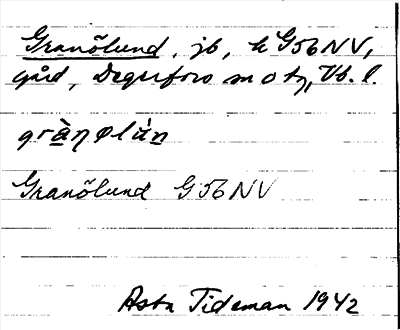 Granölund, jb, k G56NV,
gård, Degerfors sn o tg, Vb. l.
gràn̥ølùn
Granölund G56NV
Asta Tideman 1942